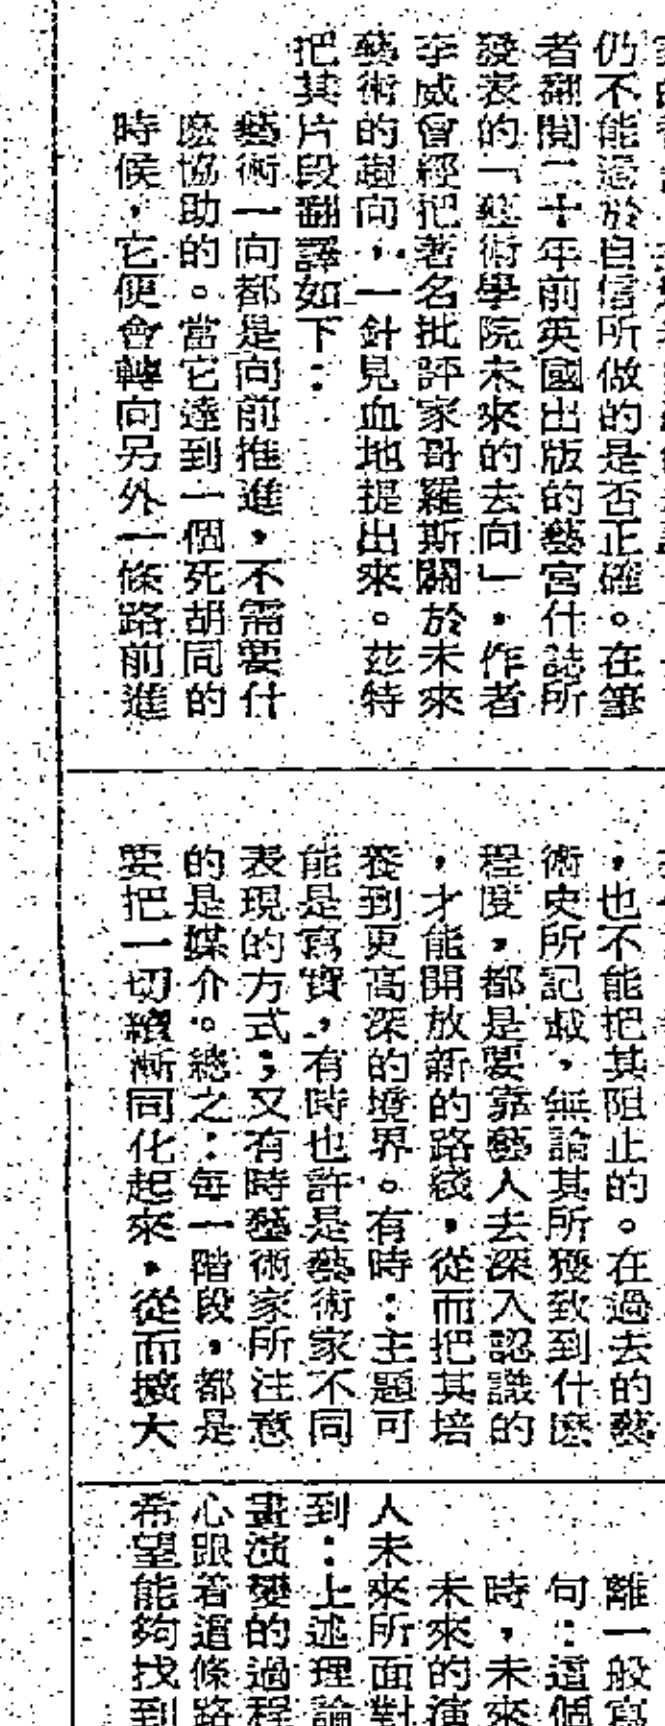 仍不能過於自信所做的是否正確。在筆
者翻閱二十年前英國出版的藝宮什誌所
發表的「藝術學院未來的去向」，作者
李威會經把著名批評家哥羅斯關於未來
藝術的趨向，一針見血地提出來。茲特
把其片段翻譯如下：
藝術一向都是向前推進，不需要什
麽協助的。當它達到一個死胡同的
時候，它便會轉向另外一條路前進
，也不能把其阻止的。在過去的藝
術史所記載，無論其所獲致到什麽
程度，都是要靠藝人去深入認識的
，才能開放新的路綫，從而把其培
養到更高深的境界。有時：主題可
能是寫實，有時也許是藝術家不同
表現的方式；又有時藝術家所注意
的是媒介。總之：每一階段，都是
要把一切續漸同化起來，從而擴大
離一般寫
句：這個
時，未來
未來的演
人未來所面對
到：上述理論
畫演變的過程
心跟着這條路
希望能夠找到